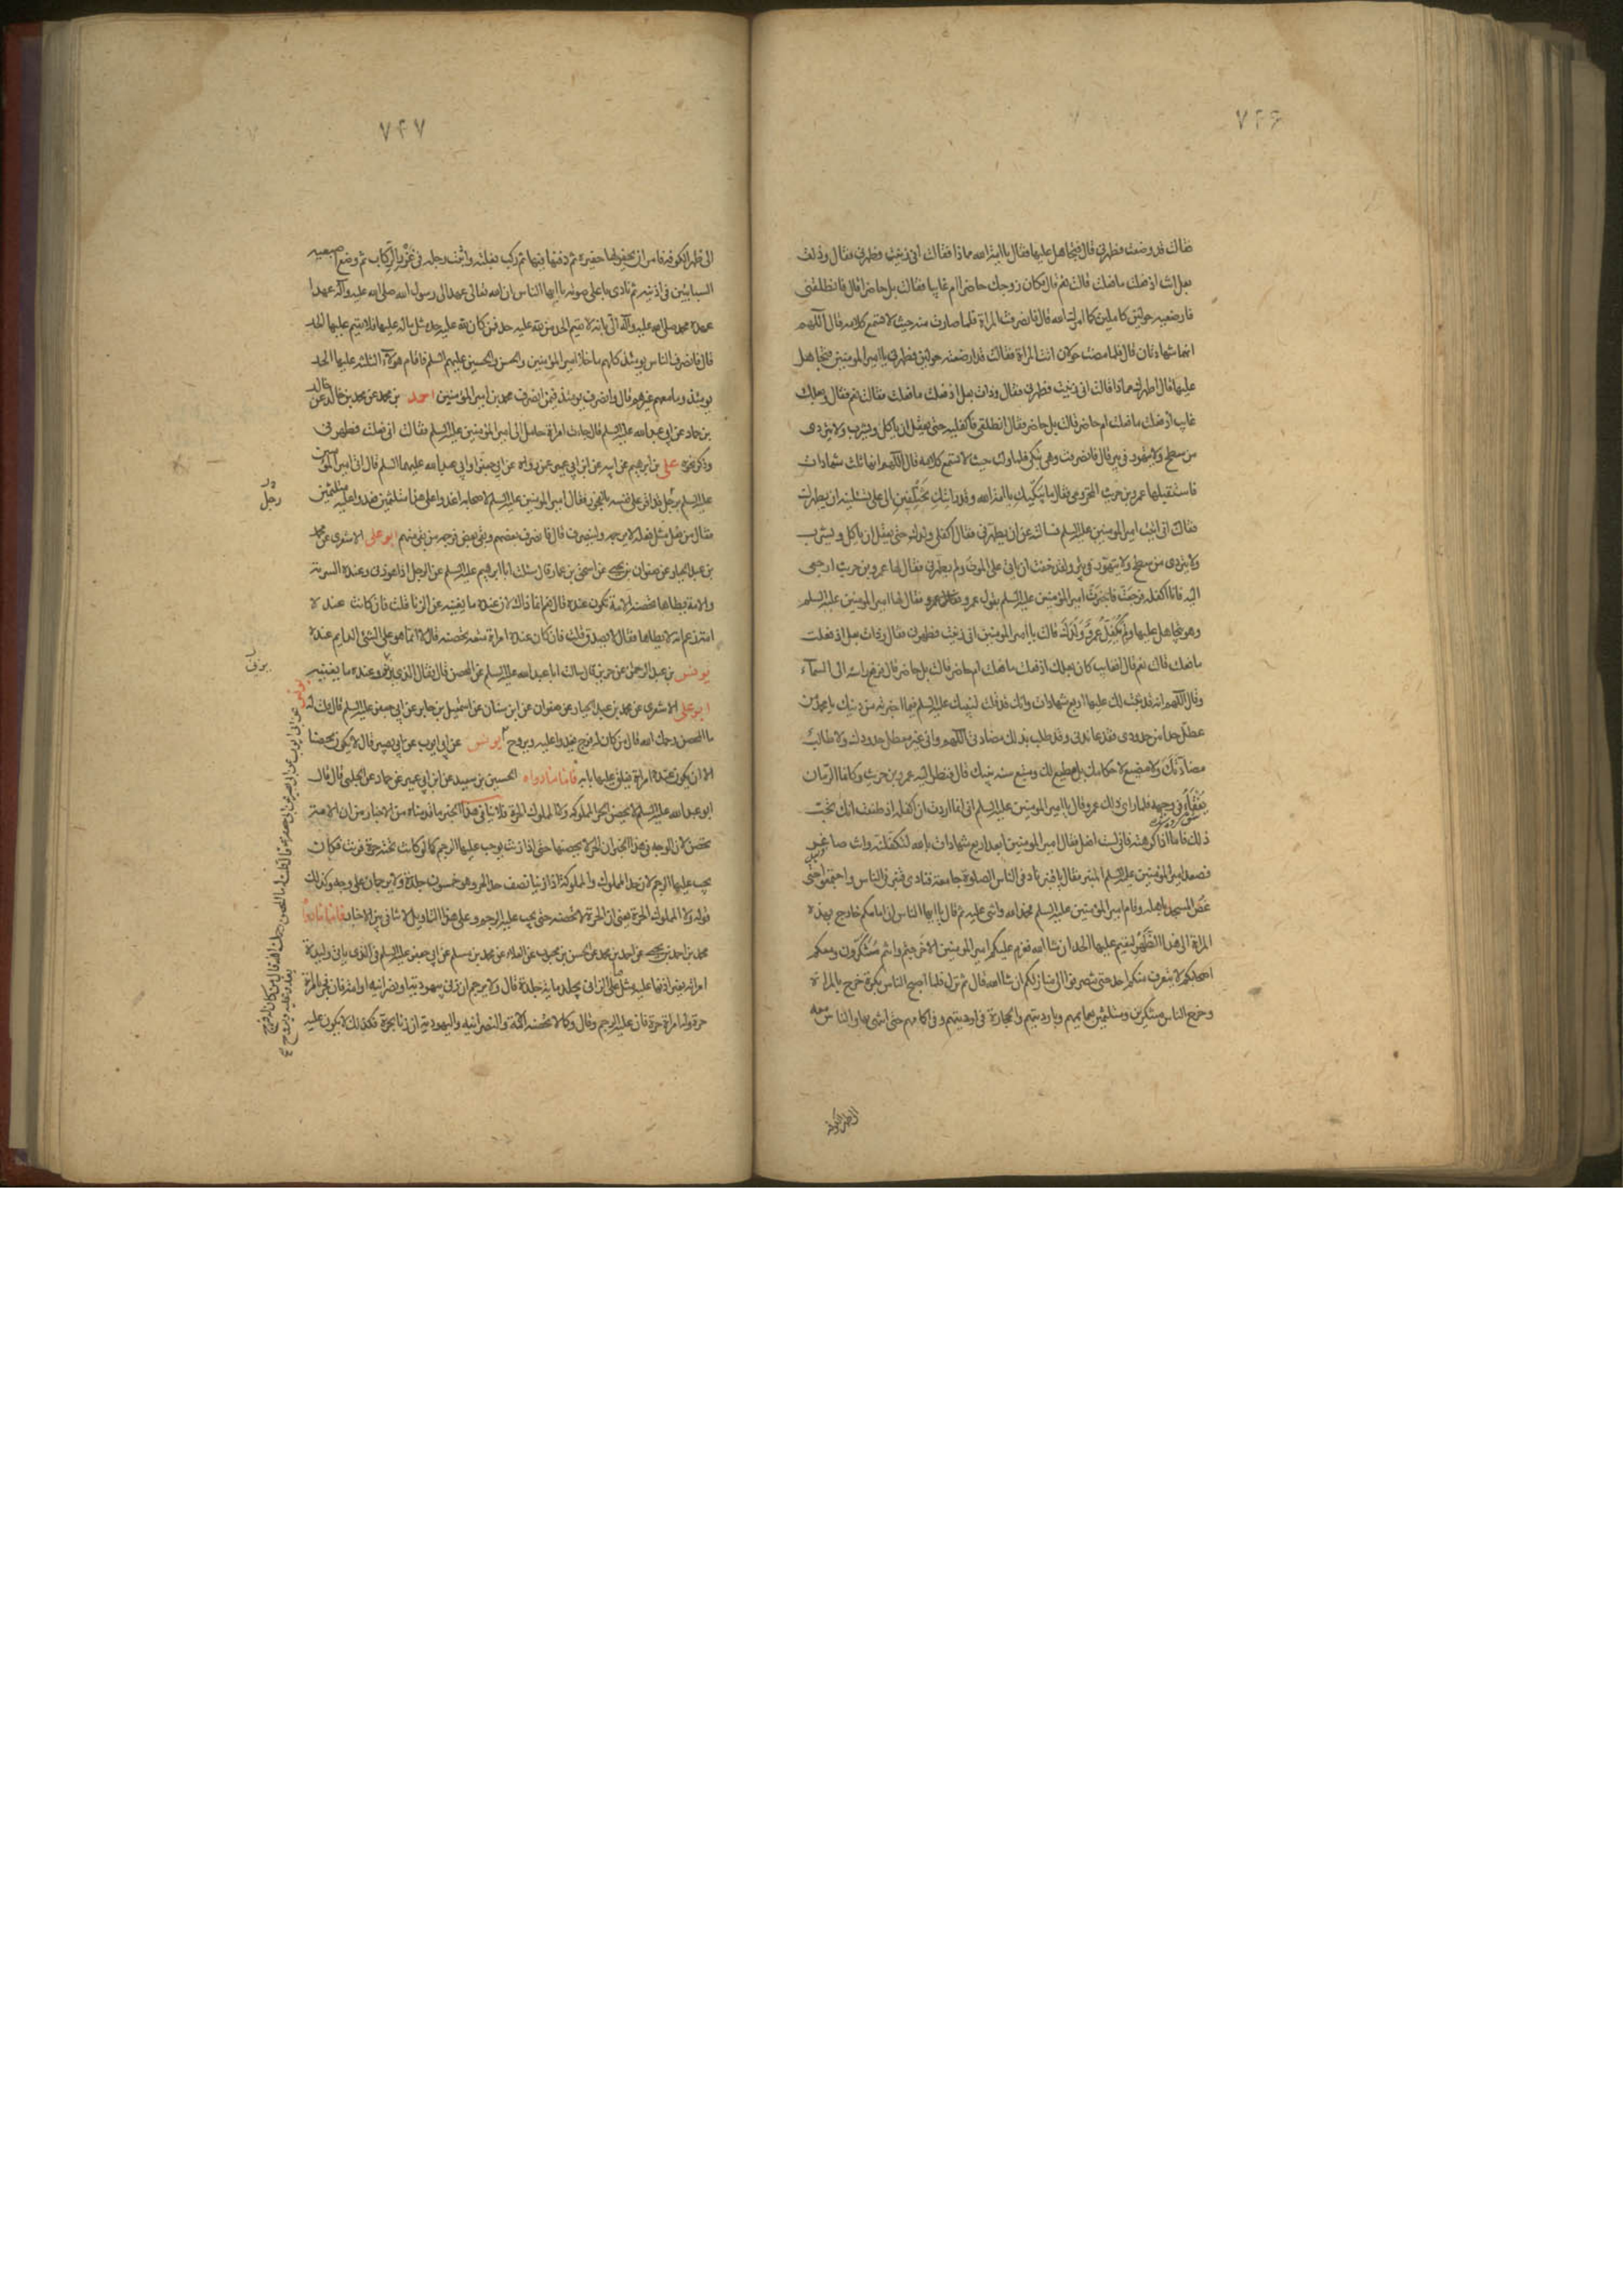 ٧٤۶
فقالت قد وضعت فطهرني قال فتجاهل عليها فقال يا امة الله مماذا فقالت اني زنيت فطهرني فقال وذات
بعل انت اذ فعلت ما فعلت قالت نعم قال فكان زوجك حاضرا ام غايبا فقالت بل حاضرا قال فانطلقي
فارضعيه حولين كاملين كما امرك الله قال فانصرفت المراة فلما صارت منه حيث لا تسمع كلامه قال اللهم
انها شهادتان قال فلما مضت حولان اتت المراة فقالت قد ارضعته حولين فطهرني يا امير المومنين فتجاهل
عليها قال اطهرك مماذا قالت اني زنيت فطهرني فقال وذات بعل اذ فعلت ما فعلت فقالت نعم فقال وبعلك
غايب اذ فعلت ما فعلت ام حاضر قالت بل حاضر فقال انطلقي فاكفليه حتى يعقل ان ياكل ويشرب ولا يتردى
من سطح ولا يتهور في بير قال فانصرفت وهي تبكي فلما ولت حيث لا تسمع كلامه قال اللهم انها ثلث شهادات
فاستقبلها عمرو بن حريث المخزومي فقال ما يبكيك يا امة الله وقد رايتك تختلفين الى علي تسئلينه ان يطهرك
فقالت اني اتيت امير المومنين عليه السلم فسالته عن ان يطهرني فقال اكفلي ولدك حتى يعقل ان ياكل ويشرب
ولا يتردى من سطح ولا يتهور في بئر ولقد خفت ان ياتي على الموت ولم يطهرني فقال لها عمرو بن حريث ارجعي
اليه فانا اكفله فرجعت فاخبرت امير المؤمنين عليه السلم بقول عمرو فقال لها امير المومنين عليه السلم
وهو يتجاهل عليها ولم يكفل عمرو ولدك قالت يا امير المومنين اني زنيت فطهرني فقال وذات بعل اذ فعلت
ما فعلت قالت نعم قال افغايب كان بعلك اذ فعلت ما فعلت ام حاضر قالت بل حاضر قال فرفع راسه الى السماء
وقال اللهم انه قد ثبت لك عليها اربع شهادات وانك قد قلت لنبيك عليه السلم فيما اخبرته من دينك يا محمد من
عطل حدا من حدودي فقد عاندني وقد طلب بذلك مضادتي اللهم واني غير معطل حدودك ولا طالب
مضادتك ولا مضيع لاحكامك بل مطيع لك ومتبع سنة نبيك قال فنظر اليه عمرو بن حريث وكانما الرمان
يفقأ في وجهه فلما راى ذلك عمرو قال يا امير المومنين عليه السلم اني انما اردت ان اكفله اذ ظننت انك تحب
ذلك فاما اذا كرهته فاني لست افعل فقال امير المومنين ابعد اربع شهادات بالله لتكفلنه وانت صاغر
فصعد امير المؤمنين عليه السلم المنبر فقال يا قنبر ناد في الناس الصلوة جامعة فنادى قنبر في الناس واجتمعوا حتى
غص المسجد باهله وقام امير المؤمنين عليه السلم فحمد الله واثنى عليه ثم قال يا ايها الناس ان امامكم خارج بهذه
المراة الى هذا الظهر ليقيم عليها الحد ان شاء الله فعزم عليكم امير المومنين الا خرجتم وانتم متنكرون ومعكم
احجاركم لا يتعرف منكم احد حتى تنصرفوا الى منازلكم ان شا الله قال ثم نزل فلما اصبح الناس بكرة خرج بالمراة
وخرج الناس متنكرين ومتلثمين بعمايمهم وبارديتهم والحجارة في ارديتهم وفي اكمامهم حتى انتهى بها والناس معه
الى ظهر الكوفة
٧٤٧
الى ظهر الكوفة فامر ان يحفر لها حفيرة ثم دفنها فيها ثم ركب بغلته واثبت رجله في غرز الركاب ثم وضع اصبعيه
السبابتين في اذنيه ثم نادى باعلى صوته يا ايها الناس ان الله تعالى عهد الى رسوله صلى الله عليه وآله عهدا
عهده محمد صلى الله عليه وآله الي بانه لا يقيم الحد من لله عليه حد فمن كان لله عليه حد مثل ما له عليها فلا يقيم عليها الحد
قال فانصرف الناس يومئذ كلهم ما خلا امير المؤمنين والحسن والحسين عليهم السلم فاقام هؤلاء الثلثة عليها الحد
يومئذ وما معهم غيرهم قال وانصرف يومئذ فيمن انصرف محمد بن امير المؤمنين احمد بن محمد عن محمد بن خالد عن
بن حماد عن ابي عبد الله عليه السلم قال جاءت امراة حامل الى امير المؤمنين عليه السلم فقالت اني فعلت فطهرني
وذكر نحوه علي بن ابرهيم عن ابيه عن ابن ابي عمير عمن رواه عن ابي جعفر او ابي عبد الله عليهما السلم قال اتي امير المومنين
عليه السلم برجل قد اقر على نفسه بالفجور فقال امير المومنين عليه السلم لاصحابه اغدوا علي غدا متلثمين فغدوا عليه متلثمين
فقال من فعل مثل فعله فلا يرجمه ولينصرف قال فانصرف بعضهم وبقي بعض فرجمه من بقي منهم ابو علي الاشعري عن محمد
بن عبد الجبار عن صفوان بن يحيى عن اسحق بن عمار قال سئلت ابا ابرهيم عليه السلم عن الرجل اذا هو زنى وعنده السرية
والامة يطاها تحصنه الامة تكون عنده قال نعم انما ذاك لان عنده ما يغنيه عن الزنا قلت فان كانت عنده
امة زعم انه لا يطاها فقال لا يصدق قلت فان كان عنده امراة متعة تحصنه قال لا انما هو على الشئ الدايم عنده
يونس بن عبد الرحمن عن حريز قال سالت ابا عبد الله عليه السلم عن المحصن قال فقال الذي يزني وعنده ما يغنيه
ابو علي الاشعري عن محمد بن عبد الجبار عن صفوان عن ابن سنان عن اسمعيل بن جابر عن ابي جعفر عليه السلم قال قلت له
ما المحصن رحمك الله قال من كان له فرج يغدوا عليه ويروح يونس عن ابي ايوب عن ابي بصير قال لا يكون محصنا
الا ان يكون عنده امراة يغلق عليها بابه فاما ما رواه الحسين بن سعيد عن ابن ابي عمير عن حماد عن الحلبي قال قال
ابو عبد الله عليه السلم لا يحصن الحر المملوكة ولا المملوك الحرة فلا ينافي هذا الخبر ما قدمناه من الاخبار من ان الامة
تحصن لان الوجه في هذا الخبر ان الحر لا يحصنها حتى اذا زنت يوجب عليها الرجم كما لو كانت تحته حرة فزنت فكان
يجب عليها الرجم لان حد المملوك والمملوكة اذا زنيا نصف حد الحر وهو خمسون جلدة ولا يرجمان على وجه وكذلك
قوله ولا المملوك الحرة يعني ان الحرة لا تحصنه حتى يجب عليه الرجم وعلى هذا التاويل لا تنافي بين الاخبار فاما ما رواه
محمد بن احمد بن يحيى عن احمد بن محمد عن الحسن بن محبوب عن العلاء عن محمد بن مسلم عن ابي جعفر عليه السلم في الذي ياتي وليدة
امراته بغير اذنها عليه مثل ما على الزاني يجلد مائة جلدة قال ولا يرجم ان زنى بيهودية او نصرانية او امة فان فجر بامراة
حرة وله امراة حرة فان عليه الرجم وقال وكما لا تحصنه الامة والنصرانية واليهودية ان زنا بحرة فكذلك لا يكون عليه
رجل
يونس عن ابي ايوب عن ابي بصير عن ابي جعفر قال قلت له ما المحصن رحمك الله قال من كان له فرج
يغدو عليه ويروح